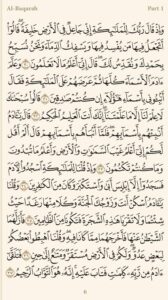 Al-Baqarah
Part 1
وَإِذْ قَالَ رَبُّكَ لِلْمَلَٰٓئِكَةِ إِنِّى جَاعِلٌ فِى ٱلْأَرْضِ خَلِيفَةً ۖ قَالُوٓا۟
أَتَجْعَلُ فِيهَا مَن يُفْسِدُ فِيهَا وَيَسْفِكُ ٱلدِّمَآءَ وَنَحْنُ نُسَبِّحُ
بِحَمْدِكَ وَنُقَدِّسُ لَكَ ۖ قَالَ إِنِّىٓ أَعْلَمُ مَا لَا تَعْلَمُونَ ٣٠ وَعَلَّمَ
ءَادَمَ ٱلْأَسْمَآءَ كُلَّهَا ثُمَّ عَرَضَهُمْ عَلَى ٱلْمَلَٰٓئِكَةِ فَقَالَ
أَنۢبِـُٔونِى بِأَسْمَآءِ هَٰٓؤُلَآءِ إِن كُنتُمْ صَٰدِقِينَ ٣١ قَالُوا۟ سُبْحَٰنَكَ
لَا عِلْمَ لَنَآ إِلَّا مَا عَلَّمْتَنَآ ۖ إِنَّكَ أَنتَ ٱلْعَلِيمُ ٱلْحَكِيمُ ٣٢ قَالَ
يَٰٓـَٔادَمُ أَنۢبِئْهُم بِأَسْمَآئِهِمْ ۖ فَلَمَّآ أَنۢبَأَهُم بِأَسْمَآئِهِمْ قَالَ أَلَمْ أَقُل
لَّكُمْ إِنِّىٓ أَعْلَمُ غَيْبَ ٱلسَّمَٰوَٰتِ وَٱلْأَرْضِ وَأَعْلَمُ مَا تُبْدُونَ
وَمَا كُنتُمْ تَكْتُمُونَ ٣٣ وَإِذْ قُلْنَا لِلْمَلَٰٓئِكَةِ ٱسْجُدُوا۟ لِءَادَمَ
فَسَجَدُوٓا۟ إِلَّآ إِبْلِيسَ أَبَىٰ وَٱسْتَكْبَرَ وَكَانَ مِنَ ٱلْكَٰفِرِينَ ٣٤
وَقُلْنَا يَٰٓـَٔادَمُ ٱسْكُنْ أَنتَ وَزَوْجُكَ ٱلْجَنَّةَ وَكُلَا مِنْهَا رَغَدًا حَيْثُ
شِئْتُمَا وَلَا تَقْرَبَا هَٰذِهِ ٱلشَّجَرَةَ فَتَكُونَا مِنَ ٱلظَّٰلِمِينَ ٣٥ فَأَزَلَّهُمَا
ٱلشَّيْطَٰنُ عَنْهَا فَأَخْرَجَهُمَا مِمَّا كَانَا فِيهِ ۖ وَقُلْنَا ٱهْبِطُوا۟ بَعْضُكُمْ
لِبَعْضٍ عَدُوٌّ ۖ وَلَكُمْ فِى ٱلْأَرْضِ مُسْتَقَرٌّ وَمَتَٰعٌ إِلَىٰ حِينٍ ٣٦ فَتَلَقَّىٰٓ
ءَادَمُ مِن رَّبِّهِۦ كَلِمَٰتٍ فَتَابَ عَلَيْهِ ۚ إِنَّهُۥ هُوَ ٱلتَّوَّابُ ٱلرَّحِيمُ ٣٧
6